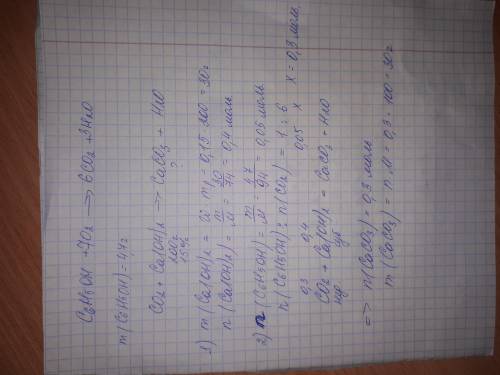 C₆H₅OH + 7O₂ → 6CO₂ + 3H₂O
m(C₆H₅OH) = 4,7г
CO₂ + Ca(OH)₂ → CaCO₃ + H₂O
200г
15%
?
1) m(Ca(OH)₂) = ω · m₁ = 0,15 · 200 = 30г
n(Ca(OH)₂) = m/M = 30/74 = 0,4 моль
2) n(C₆H₅OH) = m/M = 4,7/94 = 0,05 моль
n(C₆H₅OH) : n(CO₂) = 1 : 6
0,05 x x = 0,3 моль
0,3 0,4
CO₂ + Ca(OH)₂ = CaCO₃ + H₂O
нед изб
=> n(CaCO₃) = 0,3 моль
m(CaCO₃) = n · M = 0,3 · 100 = 30г